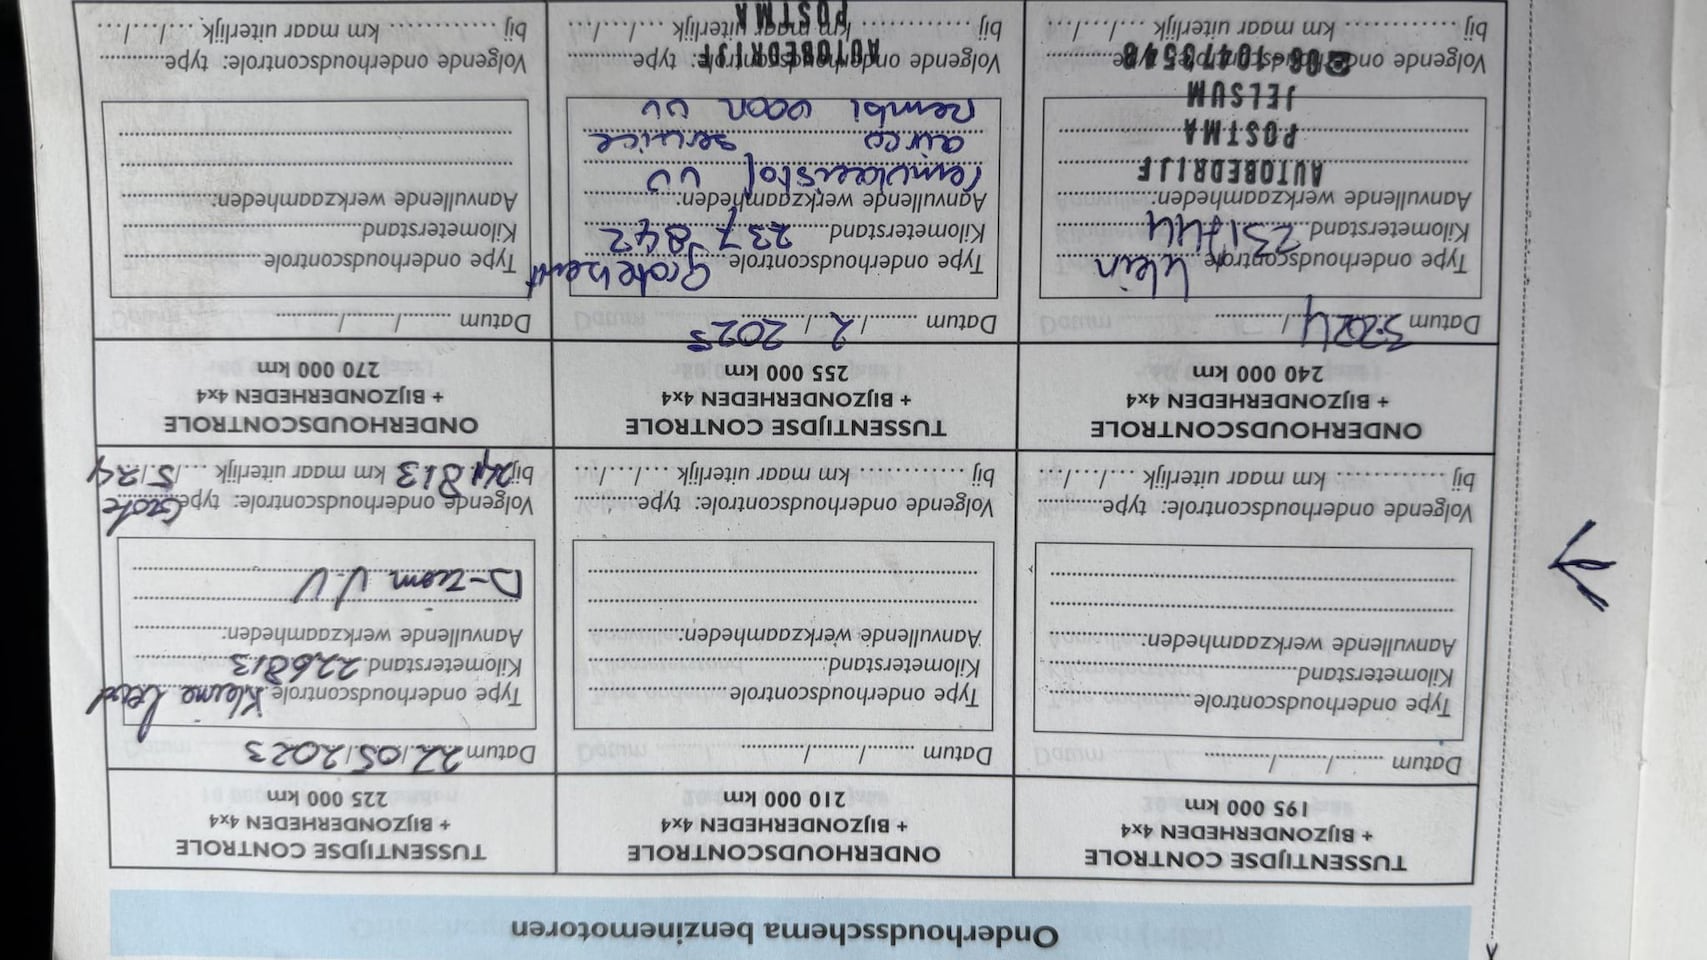 Onderhoudsschema benzinemotoren
TUSSENTIJDSE CONTROLE
+ BIJZONDERHEDEN 4x4
195 000 km
Datum ......../......../........
Type onderhoudscontrole
Kilometerstand
Aanvullende werkzaamheden:
Volgende onderhoudscontrole: type
bij ............ km maar uiterlijk ..../..../....
ONDERHOUDSCONTROLE
+ BIJZONDERHEDEN 4x4
210 000 km
Datum ......../......../........
Type onderhoudscontrole
Kilometerstand
Aanvullende werkzaamheden:
Volgende onderhoudscontrole: type
bij ............ km maar uiterlijk ..../..../....
TUSSENTIJDSE CONTROLE
+ BIJZONDERHEDEN 4x4
225 000 km
Datum 22/05/2023
Type onderhoudscontrole Kleine
Kilometerstand 226813
Aanvullende werkzaamheden:
Volgende onderhoudscontrole: type Grote
bij km maar uiterlijk /5/24
ONDERHOUDSCONTROLE
+ BIJZONDERHEDEN 4x4
240 000 km
Datum 3-2024
Type onderhoudscontrole klein
Kilometerstand 231744
Aanvullende werkzaamheden:
AUTOBEDRIJF
POSTMA
JELSUM
Volgende onderhoudscontrole: type
06-10473548
bij ............ km maar uiterlijk ..../..../....
TUSSENTIJDSE CONTROLE
+ BIJZONDERHEDEN 4x4
255 000 km
Datum ......../ 2 / 2025
Type onderhoudscontrole Grote beurt
Kilometerstand 237 842
Aanvullende werkzaamheden:
remvloeistof VV
airco service
voor VV
Volgende onderhoudscontrole: type
AUTOBEDRIJF
bij ............ km maar uiterlijk ..../..../....
POSTMA
ONDERHOUDSCONTROLE
+ BIJZONDERHEDEN 4x4
270 000 km
Datum ......../......../........
Type onderhoudscontrole
Kilometerstand
Aanvullende werkzaamheden:
Volgende onderhoudscontrole: type
bij ............ km maar uiterlijk ..../..../....